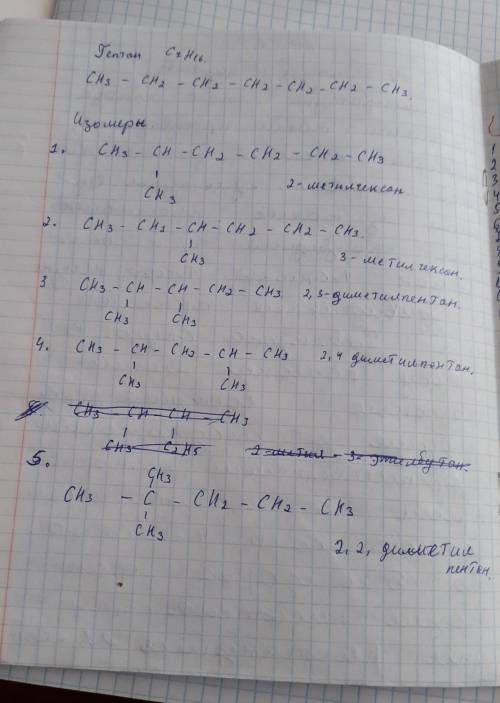 Гептан C7H16.
CH3 - CH2 - CH2 - CH2 - CH2 - CH2 - CH3.
Изомеры
1. CH3 - CH - CH2 - CH2 - CH2 - CH3
CH3 2-метилгексан
2. CH3 - CH2 - CH - CH2 - CH2 - CH3.
CH3 3-метилгексан.
3 CH3 - CH - CH - CH2 - CH3 2,3-диметилпентан.
CH3 CH3
4. CH3 - CH - CH2 - CH - CH3 2,4 диметилпентан.
CH3 CH3
CH3 - CH - CH - CH3
CH3 C2H5 2-метил-3-этилбутан.
5.
CH3
CH3 - C - CH2 - CH2 - CH3
CH3
2,2, диметил
пентан.